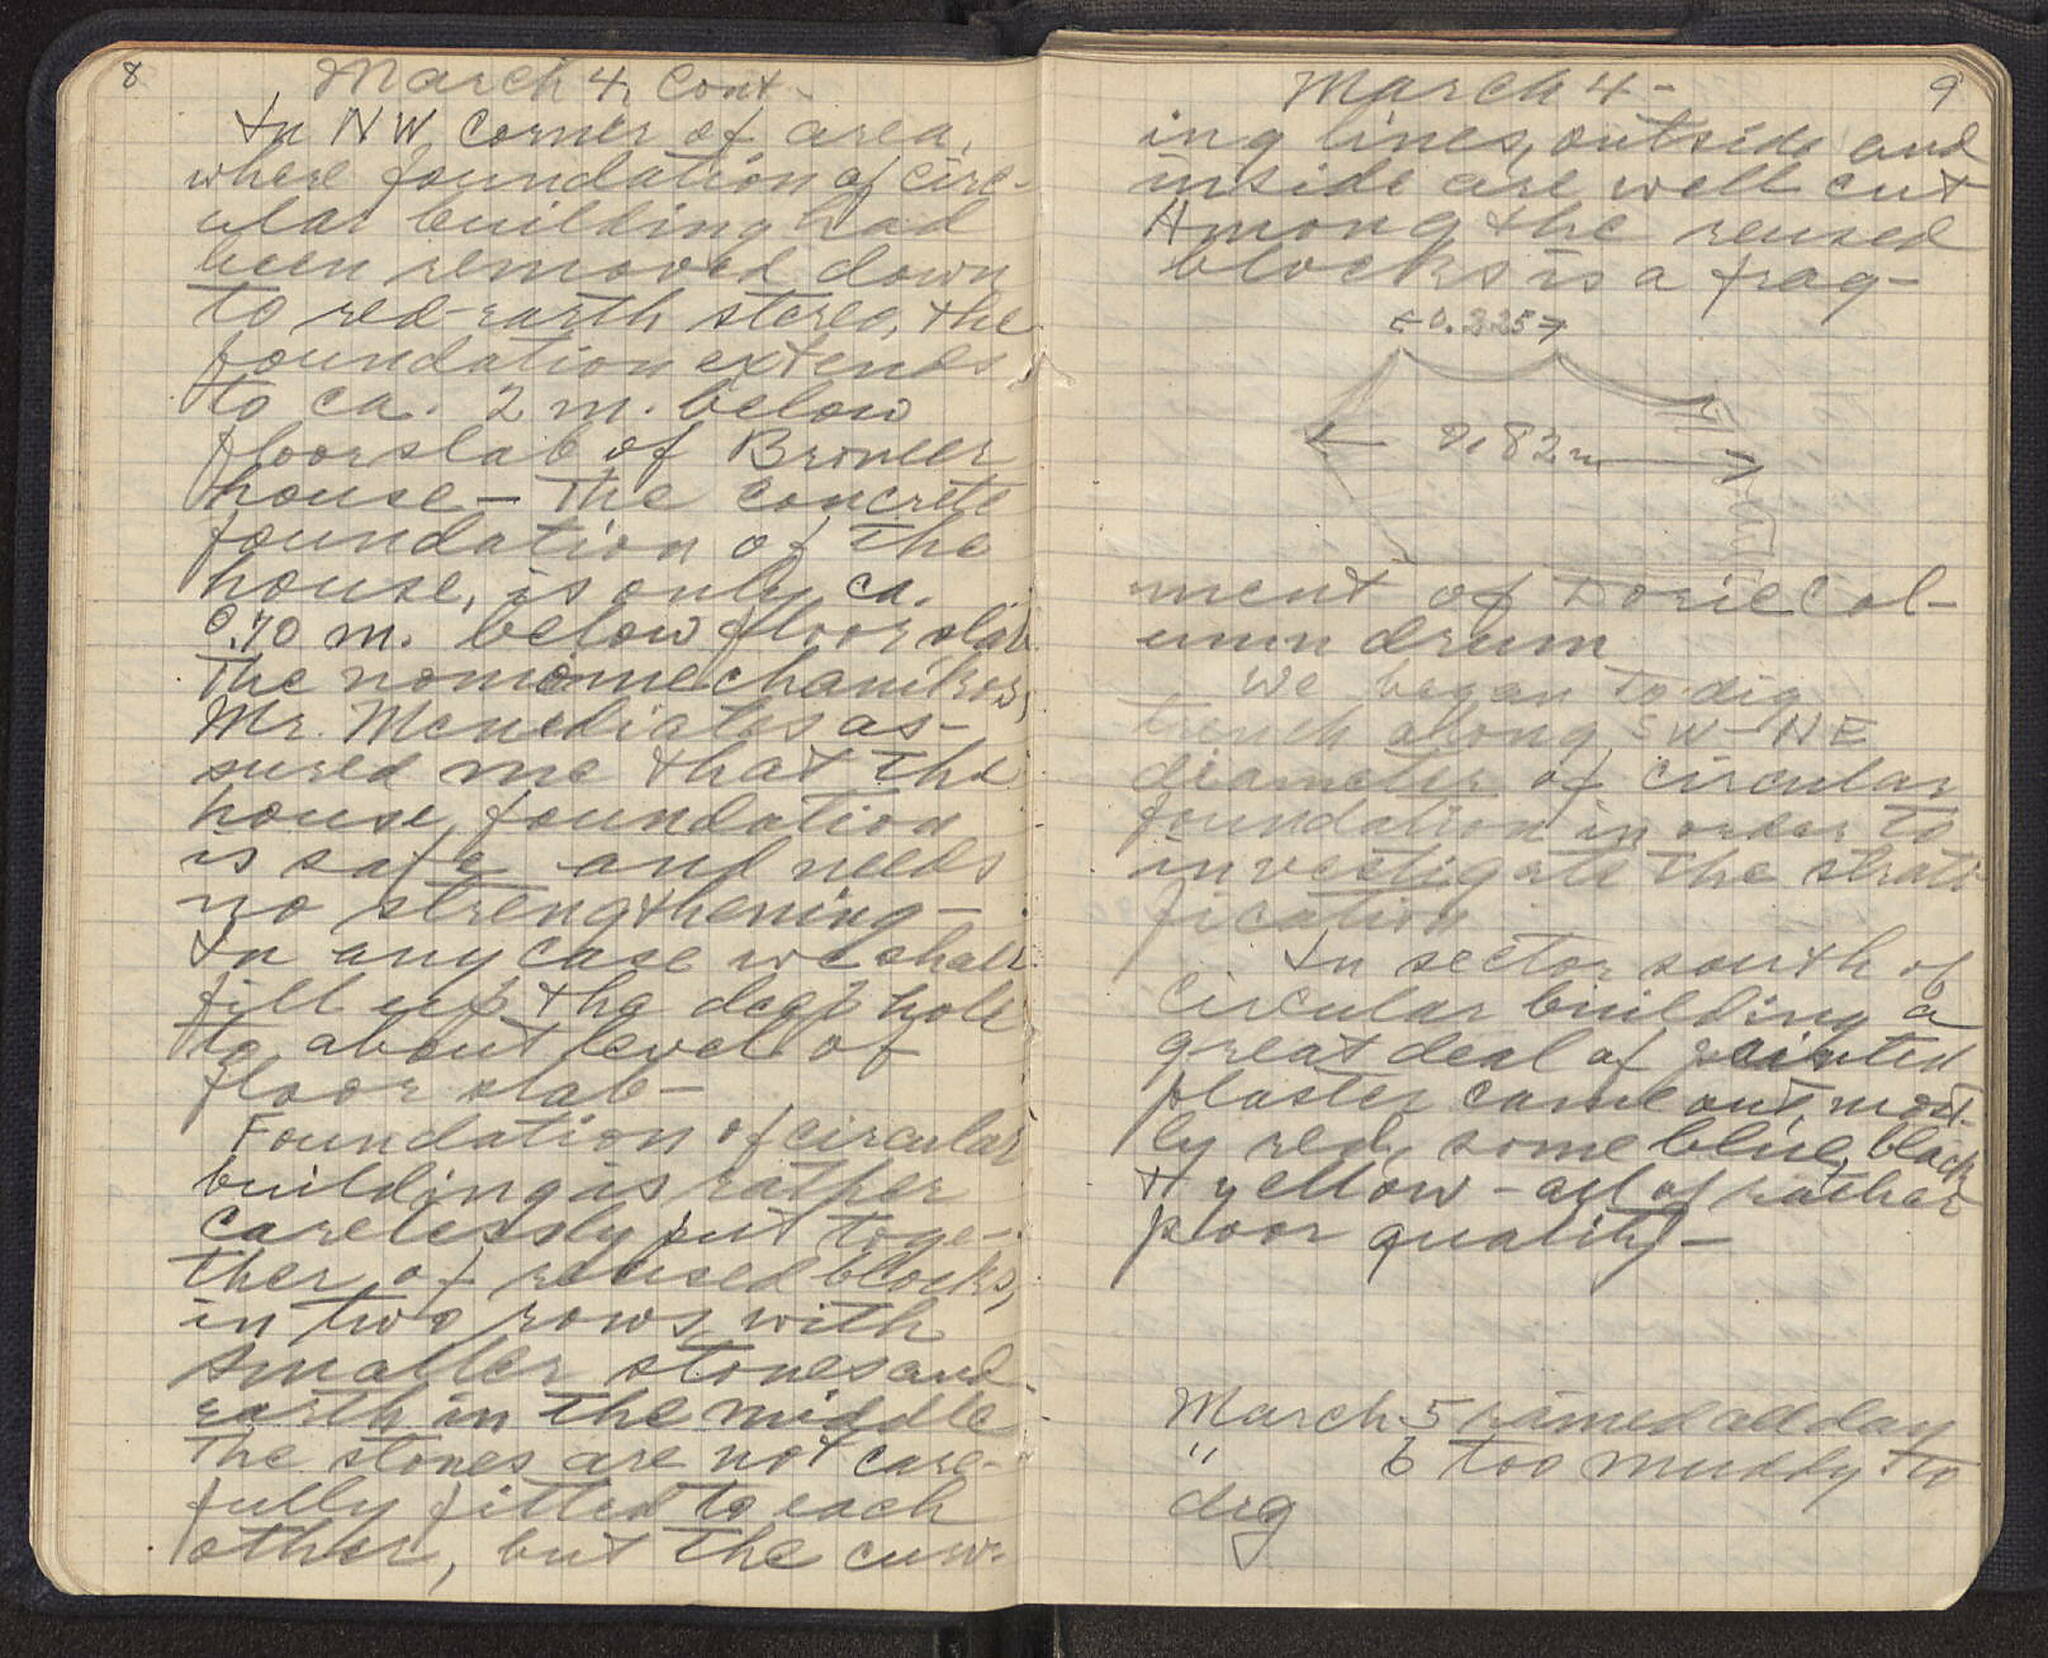 8
March 4, Cont -
In NW Corner of area,
where foundation of circ-
ular building had
been removed down
to red-earth stereo, the
foundation extends
to ca. 2 m. below
floor slab of Broneer
house - The concrete
foundation of the
house, is only ca.
0.70 m. below floor slab
The nomomechanikos,
Mr. Menediates as-
sured me that the
house foundation
is safe and needs
no strengthening -
In any case we shall
fill up the deep hole
to about level of
floor slab -
Foundation of circular
building is rather
carelessly put toge-
ther of reused blocks,
in two rows with
smaller stones and
earth in the middle
The stones are not care-
fully fitted to each
other, but the curv-
March 4 -
9
ing lines, outside and
inside are well cut
Among the reused
blocks is a frag-
0.225
0.82 m
ment of Doric Col-
umn drum
We began to dig
trench along SW-NE
diameter of circular
foundation in order to
investigate the strati
fication
In sector south of
circular building a
great deal of painted
plaster came out, most-
ly red, some blue, black
+ yellow - all of rather
poor quality -
March 5 rained all day
" 6 too muddy to
dig